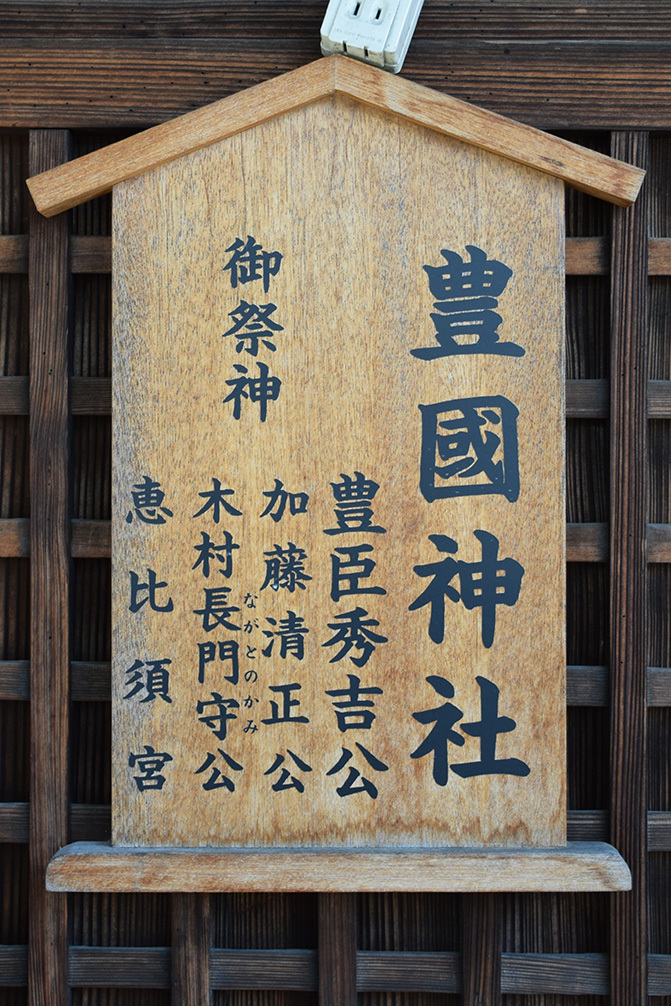 豊國神社
御祭神
豊臣秀吉公
加藤清正公
木村長門守公
ながとのかみ
恵比須宮